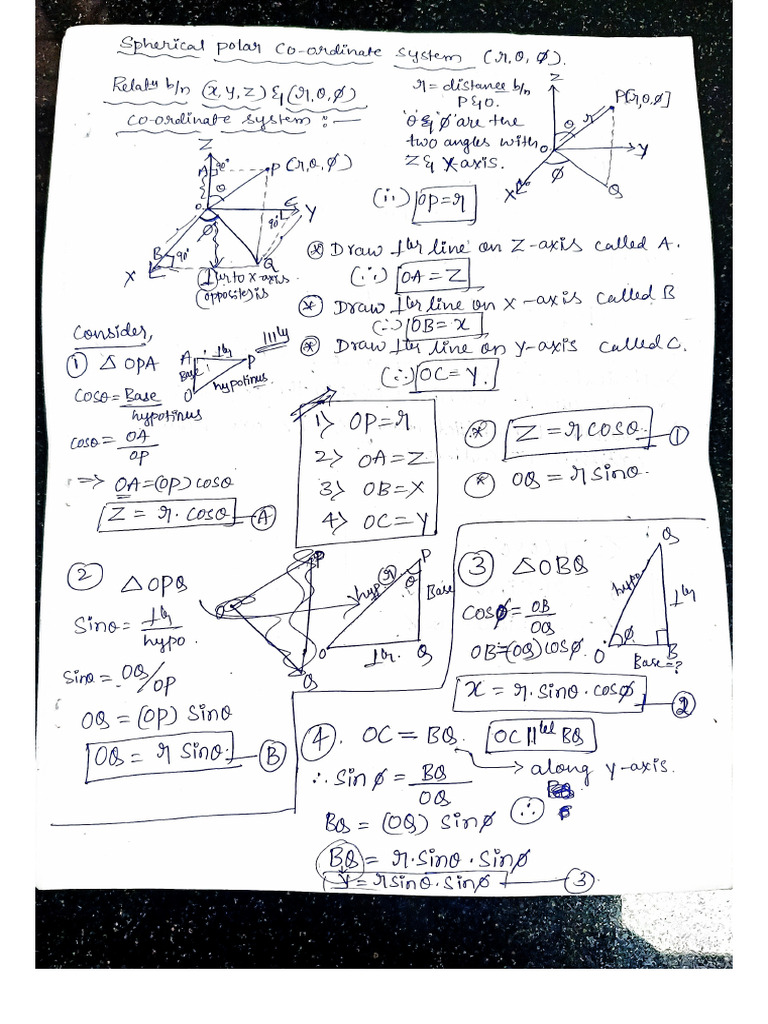 Spherical polar Co-ordinate system (r, θ, ϕ).
Relatn b/n (x, y, z) & (r, θ, ϕ)
co-ordinate system :—
r = distance b/n
P & O.
'θ & 'ϕ' are the
two angles with
Z & X-axis.
(∴) OP = r
Z
P[r, θ, ϕ]
θ
r
O
Y
ϕ
X
Q
Z
A
90°
P (r, θ, ϕ)
θ
O
C
Y
90°
ϕ
B
90°
X
Q
⊥ler to x-axis
(opposite) is
* Draw ⊥ler line on Z-axis called A.
(∴) OA = Z
* Draw ⊥ler line on X-axis called B
(∴) OB = x
* Draw ⊥ler line on y-axis called C.
(∴) OC = Y.
Consider,
① △ OPA
A
⊥ly
P
|||ly
Base
O
hypotinus
Cosθ = Base
hypotinus
cosθ = OA
OP
=> OA = (OP) cosθ
Z = r. cosθ — Ⓐ
1> OP = r
2> OA = Z
3> OB = X
4> OC = Y
* Z = r cosθ. — ①
* OQ = r sinθ.
② △OPQ
Sinθ = ⊥ly
hypo.
Sinθ = OQ/OP
OQ = (OP) Sinθ
OQ = r Sinθ. — Ⓑ
P
O
Q
P
hyp r
θ
Base
O
⊥lr.
Q
③ △OBQ
Cosϕ = OB
OQ
OB = (OQ) cosϕ.
x = r. sinθ. cosϕ — ②
Q
hypo
⊥ly
ϕ
O
B
Base = ?
④. OC = BQ. OC ||lel BQ
→ along y-axis.
∴ Sinϕ = BQ
OQ
BQ = (OQ) Sinϕ ∴
BQ = r. Sinθ. Sinϕ
Y = r sinθ. sinϕ — ③.